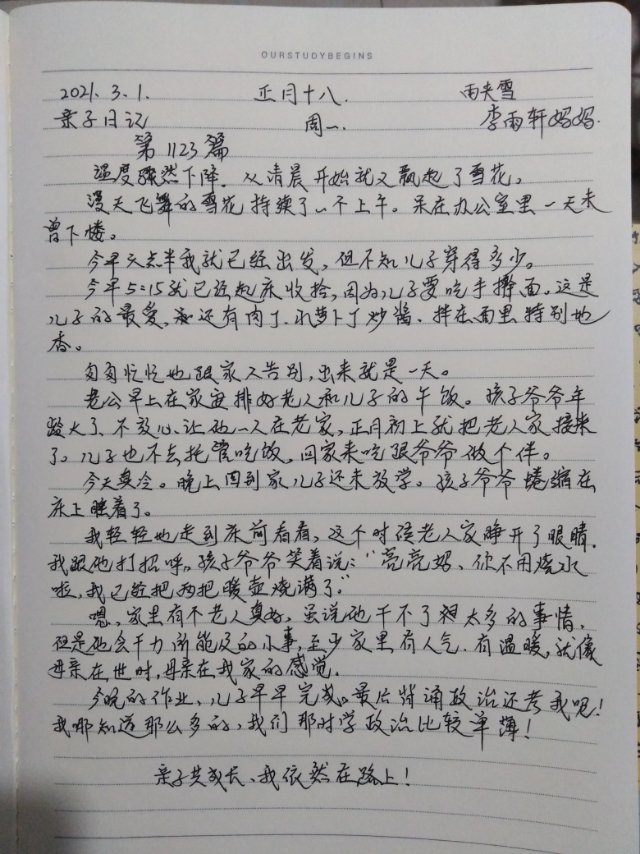 OURSTUDYBEGINS
2021. 3. 1. 正月十八. 雨夹雪
亲子日记 周一. 李雨轩妈妈.
第1123篇
温度骤然下降. 从清晨开始就又飘起了雪花。
漫天飞舞的雪花持续了一个上午。呆在办公室里一天未
曾下楼。
今早六点半我就已经出发, 但不知儿子穿得多少。
今早5:15就已经起床收拾, 因为儿子要吃手擀面。这是
儿子的最爱, 还有肉丁、胡萝卜丁炒酱、拌在面里特别地
香。
匆匆忙忙地跟家人告别, 出来就是一天。
老公早上在家安排好老人和儿子的午饭。孩子爷爷年
龄大了、不放心让他一人在老家, 正月初上就把老人家接来
了。儿子也不去托管吃饭, 回家来吃跟爷爷做个伴。
今天真冷。晚上回到家儿子还未放学。孩子爷爷蜷缩在
床上睡着了。
我轻轻地走到床前看看, 这个时候老人家睁开了眼睛.
我跟他打招呼。孩子爷爷笑着说:“亮亮妈、你不用烧水
啦, 我已经把两把暖壶烧满了。”
嗯, 家里有个老人真好, 虽说他干不了太多的事情.
但是他会干力所能及的小事, 至少家里有人气. 有温暖, 就像
母亲在世时, 母亲在我家的感觉.
今晚的作业, 儿子早早完成。最后背诵政治还考我呢!
我哪知道那么多的, 我们那时学政治比较单薄!
亲子共成长、我依然在路上!